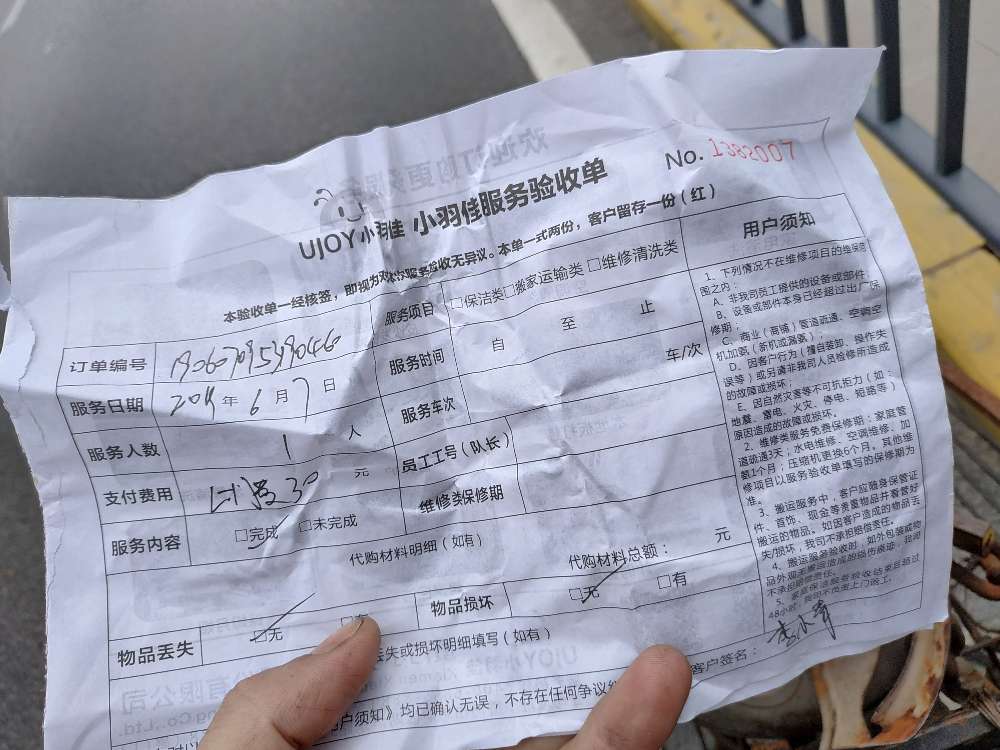 No. 1382007
UJOY小羽佳 小羽佳服务验收单
本验收单一经核签，即视为对本次服务验收无异议。本单一式两份，客户留存一份（红）
订单编号
服务项目 □保洁类□搬家运输类 □维修清洗类
服务日期 年 6 月 7 日
服务时间 自 至 止
服务人数 1 人
服务车次 车/次
支付费用 30 元
员工工号（队长）
服务内容 □完成 □未完成
维修类保修期
代购材料明细（如有）
代购材料总额： 元
物品丢失 □无
物品损坏 □无 □有
丢失或损坏明细填写（如有）
户须知》均已确认无误，不存在任何争议
客户签名：
用户须知
1、下列情况不在维修项目的维保范
围之内：
A、非我司员工提供的设备或部件
B、设备或部件本身已经超过出厂保
修期；
C、商业（商铺）管道疏通、空调空
机加氨（新机或漏氨）；
D、因客户行为（擅自装卸、操作失
误等）或另请非我司人员检修所造成
的故障或损坏；
E、因自然灾害等不可抗拒力（如：
地震、雷电、火灾、停电、短路等）
原因造成的故障或损坏。
2、维修类服务免费保修期：家庭管
道疏通3天；水电维修、空调维修、加
氨1个月；压缩机更换6个月。其他维
修项目以服务验收单填写的保修期为
准。
3、搬运服务中，客户应随身保管证
件、首饰、现金等贵重物品并看管好
搬运的物品。如因客户造成的物品丢
失/损坏，我司不承担赔偿责任。
4、搬运服务验收时，如外包装或物
品外观无搬运造成的损伤痕迹，我司
不承担赔偿责任。
5、家庭保洁服务验收结束后超过
48小时，我司不负责上门返工。